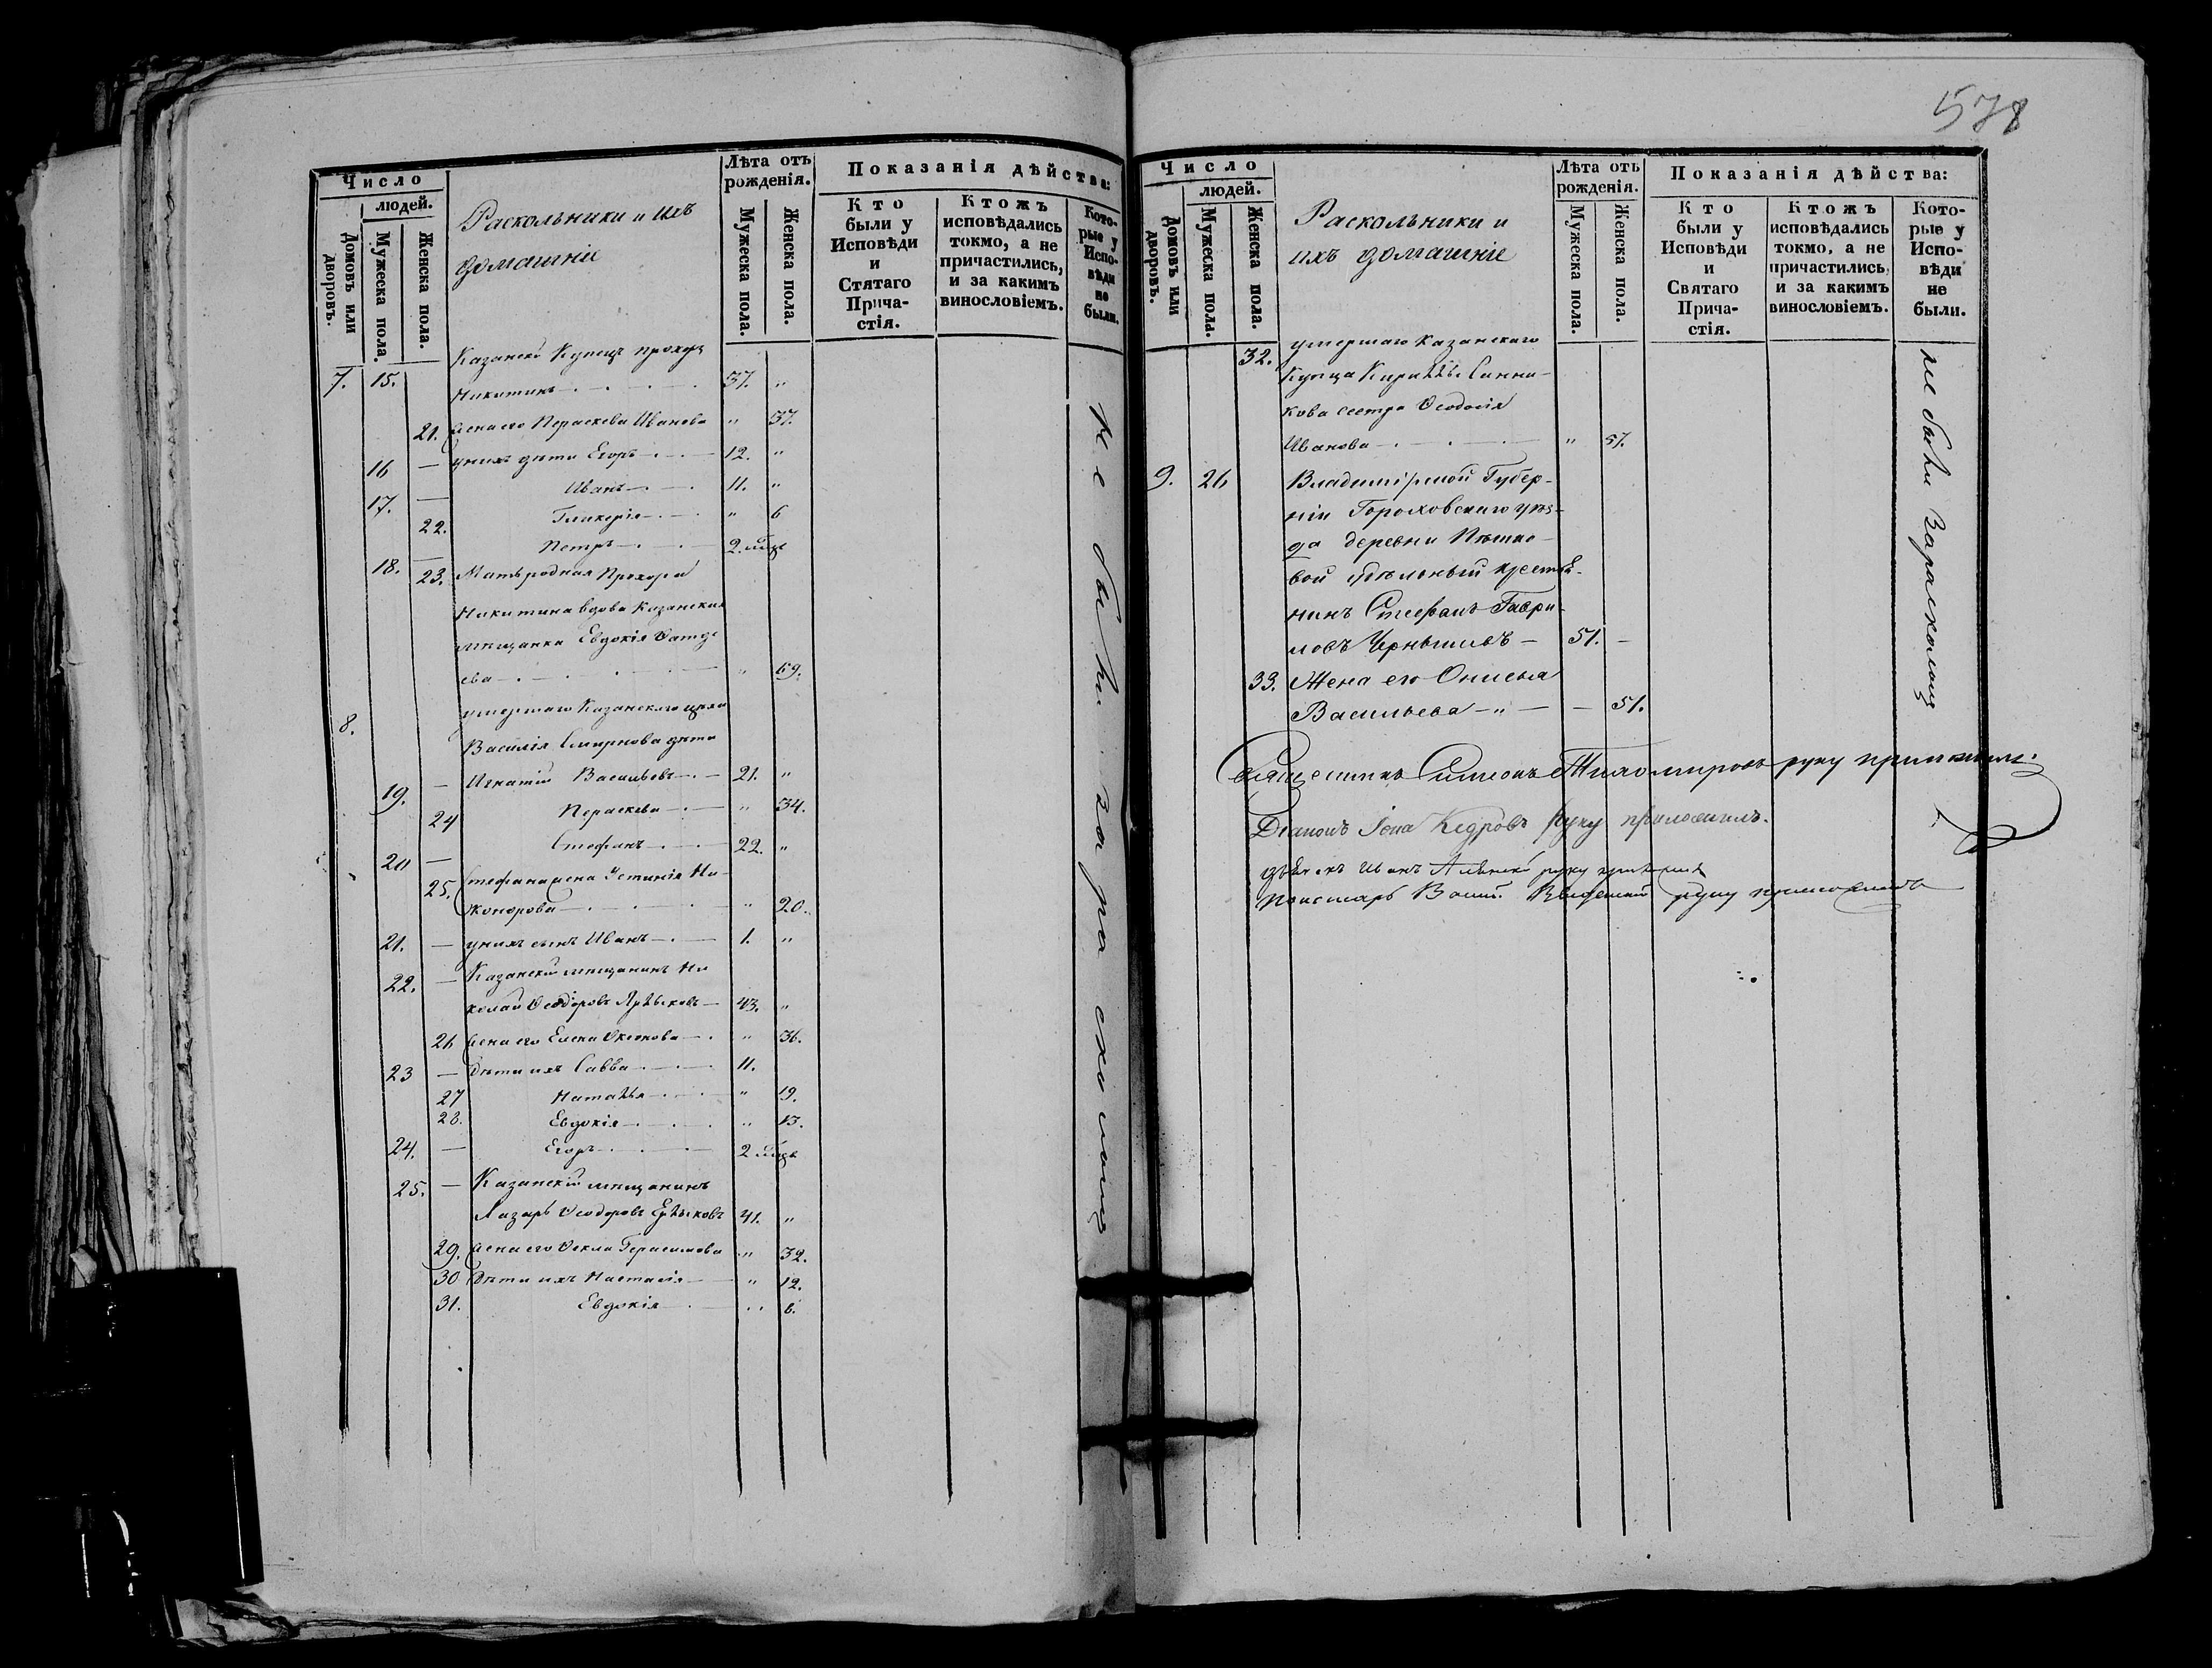 578
Число
людей.
Домовъ или дворовъ.
Мужеска пола.
Женска пола.
Раскольники и ихъ
домашніе
Лѣта отъ рожденія.
Мужеска пола.
Женска пола.
Показанія дѣйства:
Кто были у Исповѣди и Стятаго Прича-стія.
Ктожъ исповѣдались токмо, а не причастились, и за какимъ винословіемъ.
Кото-рые у Испо-вѣди не были.
Казанскій Купецъ Прохоръ
7. 15. Никитинъ 37. "
21. Жена его Параскева Иванова " 37.
16 — у нихъ дѣти Егоръ 12. "
17. — Иванъ 11. "
22. Гликерія " 6
18. — Петръ 2. мѣся
23. Мать родная Прохора
Никитина вдова Казанская
мѣщанка Евдокія
ева " 69.
8. умершаго Казанскаго
Василія Смирнова дѣти
19. — Игнатій Васильевъ 21. "
24 Параскева " 34.
20 — Стефанъ 22. "
25. Стефана жена Устинія Ни-
конорова " 20.
21. — у нихъ сынъ Иванъ 1. "
22. — Казанскій мѣщанинъ Ни
колай Ѳеодоровъ 43. "
26 Жена его Елена " 36.
23 — Дѣти ихъ Савва 11.
27 Наталья " 19.
28. Евдокія " 13.
24. — Егоръ 2 мѣся
25. — Казанскій мѣщанинъ
Лазарь Ѳеодоровъ 41. "
29. Жена его Ѳекла Герасимова " 32.
30 Дѣти ихъ Настасія " 12.
31. Евдокія 6.
Не были за расколомъ
Число
людей.
Домовъ или дворовъ.
Мужеска пола.
Женска пола.
Раскольники и
ихъ домашніе
Лѣта отъ рожденія.
Мужеска пола.
Женска пола.
Показанія дѣйства:
Кто были у Исповѣди и Святаго Прича-стія.
Ктожъ исповѣдались токмо, а не причастились, и за какимъ винословіемъ.
Кото-рые у Испо-вѣди не были.
32. умершаго Казанскаго
Купца Кириллы Санни-
кова сестра Ѳеодосія
Иванова " 57.
9. 26 Владимірской Губер-
ніи Гороховскаго уѣз-
да деревни
вой удѣльный крестья-
нинъ Стефанъ Гаври-
ловъ Чернышевъ — 51. —
33. Жена его Онисья
Васильева — " — — 51.
не были за расколомъ
Священникъ Симеонъ Тихомировъ руку приложилъ.
Діаконъ Іона Кедровъ руку приложилъ.
Дьячекъ Иванъ руку
Пономарь Васил. Введенскій руку приложилъ